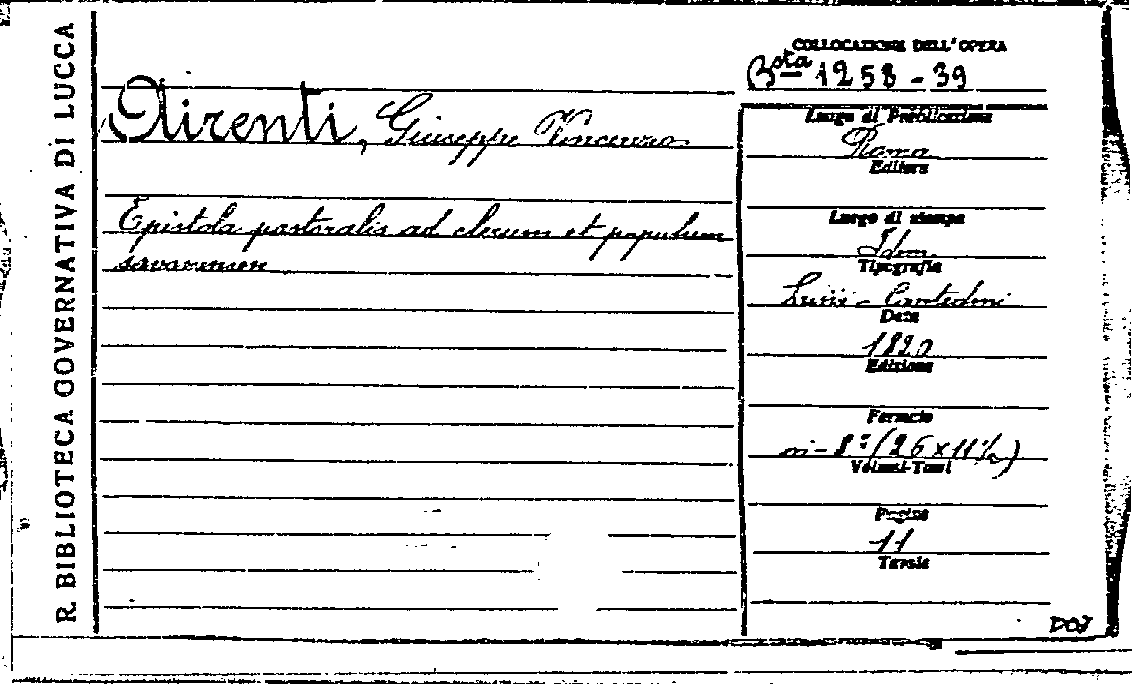 R. BIBLIOTECA GOVERNATIVA DI LUCCA
COLLOCAZIONE DELL'OPERA
Bsta 1258-39
Airenti, Giuseppe Vincenzo
Epistola pastoralis ad clerum et populum
savonensem
Luogo di Pubblicazione
Roma
Editore
Luogo di stampa
Idem
Tipografia
Data
1820
Edizione
Formato
in-8° (26x11½)
Volumi-Tomi
Pagine
11
Tavole